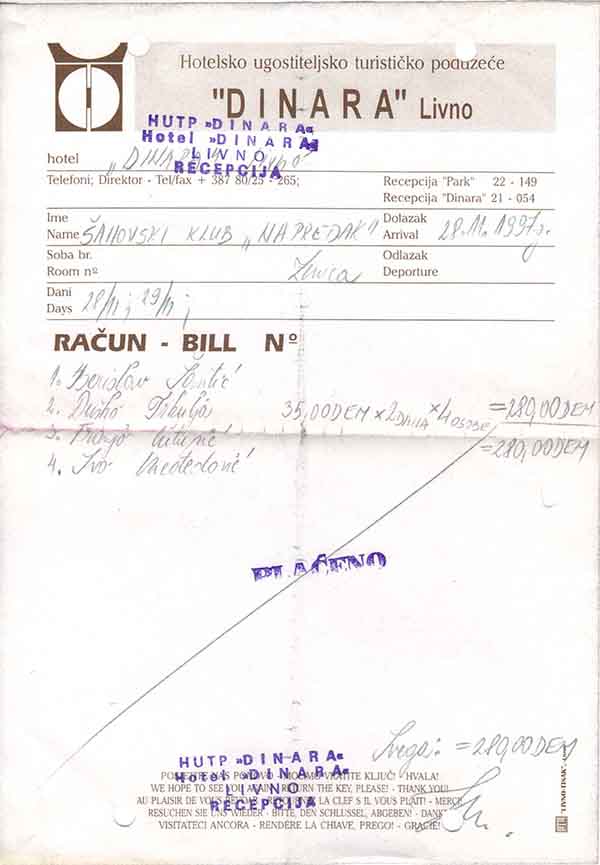 Hotelsko ugostiteljsko turističko poduzeće
"DINARA" Livno
HUTP »DINARA«
Hotel »DINARA«
LIVNO
RECEPCIJA
hotel „DINARA"
Telefoni; Direktor - Tel/fax + 387 80/25 - 265;
Recepcija "Park" 22 - 149
Recepcija "Dinara" 21 - 054
Ime
Name ŠAHOVSKI KLUB „NAPREDAK"
Dolazak
Arrival 28.11.1997g.
Soba br.
Room nº Zenica
Odlazak
Deperture
Dani
Days 28/11; 29/11;
RAČUN - BILL Nº
1. Berislav
2. Duško
3. Franjo
4. Ivo
35,00DEM × 2 DANA × 4 OSOBE = 280,00DEM
= 280,00DEM
PLAĆENO
Svega: = 280,00DEM
HUTP »DINARA«
Hotel »DINARA«
LIVNO
RECEPCIJA
POSJETITE NAS PONOVO - MOLIMO VRATITE KLJUČ! - HVALA!
WE HOPE TO SEE YOU AGAIN - RETURN THE KEY, PLEASE! - THANK YOU!
AU PLAISIR DE VOUS LA CLEF S IL VOUS PLAIT! - MERCI
RESUCHEN SIE UNS WIEDER - BITTE, DEN SCHLUSSEL, ABGEBEN! - DANK
VISITATECI ANCORA - RENDERE LA CHIAVE, PREGO! - GRACIE!